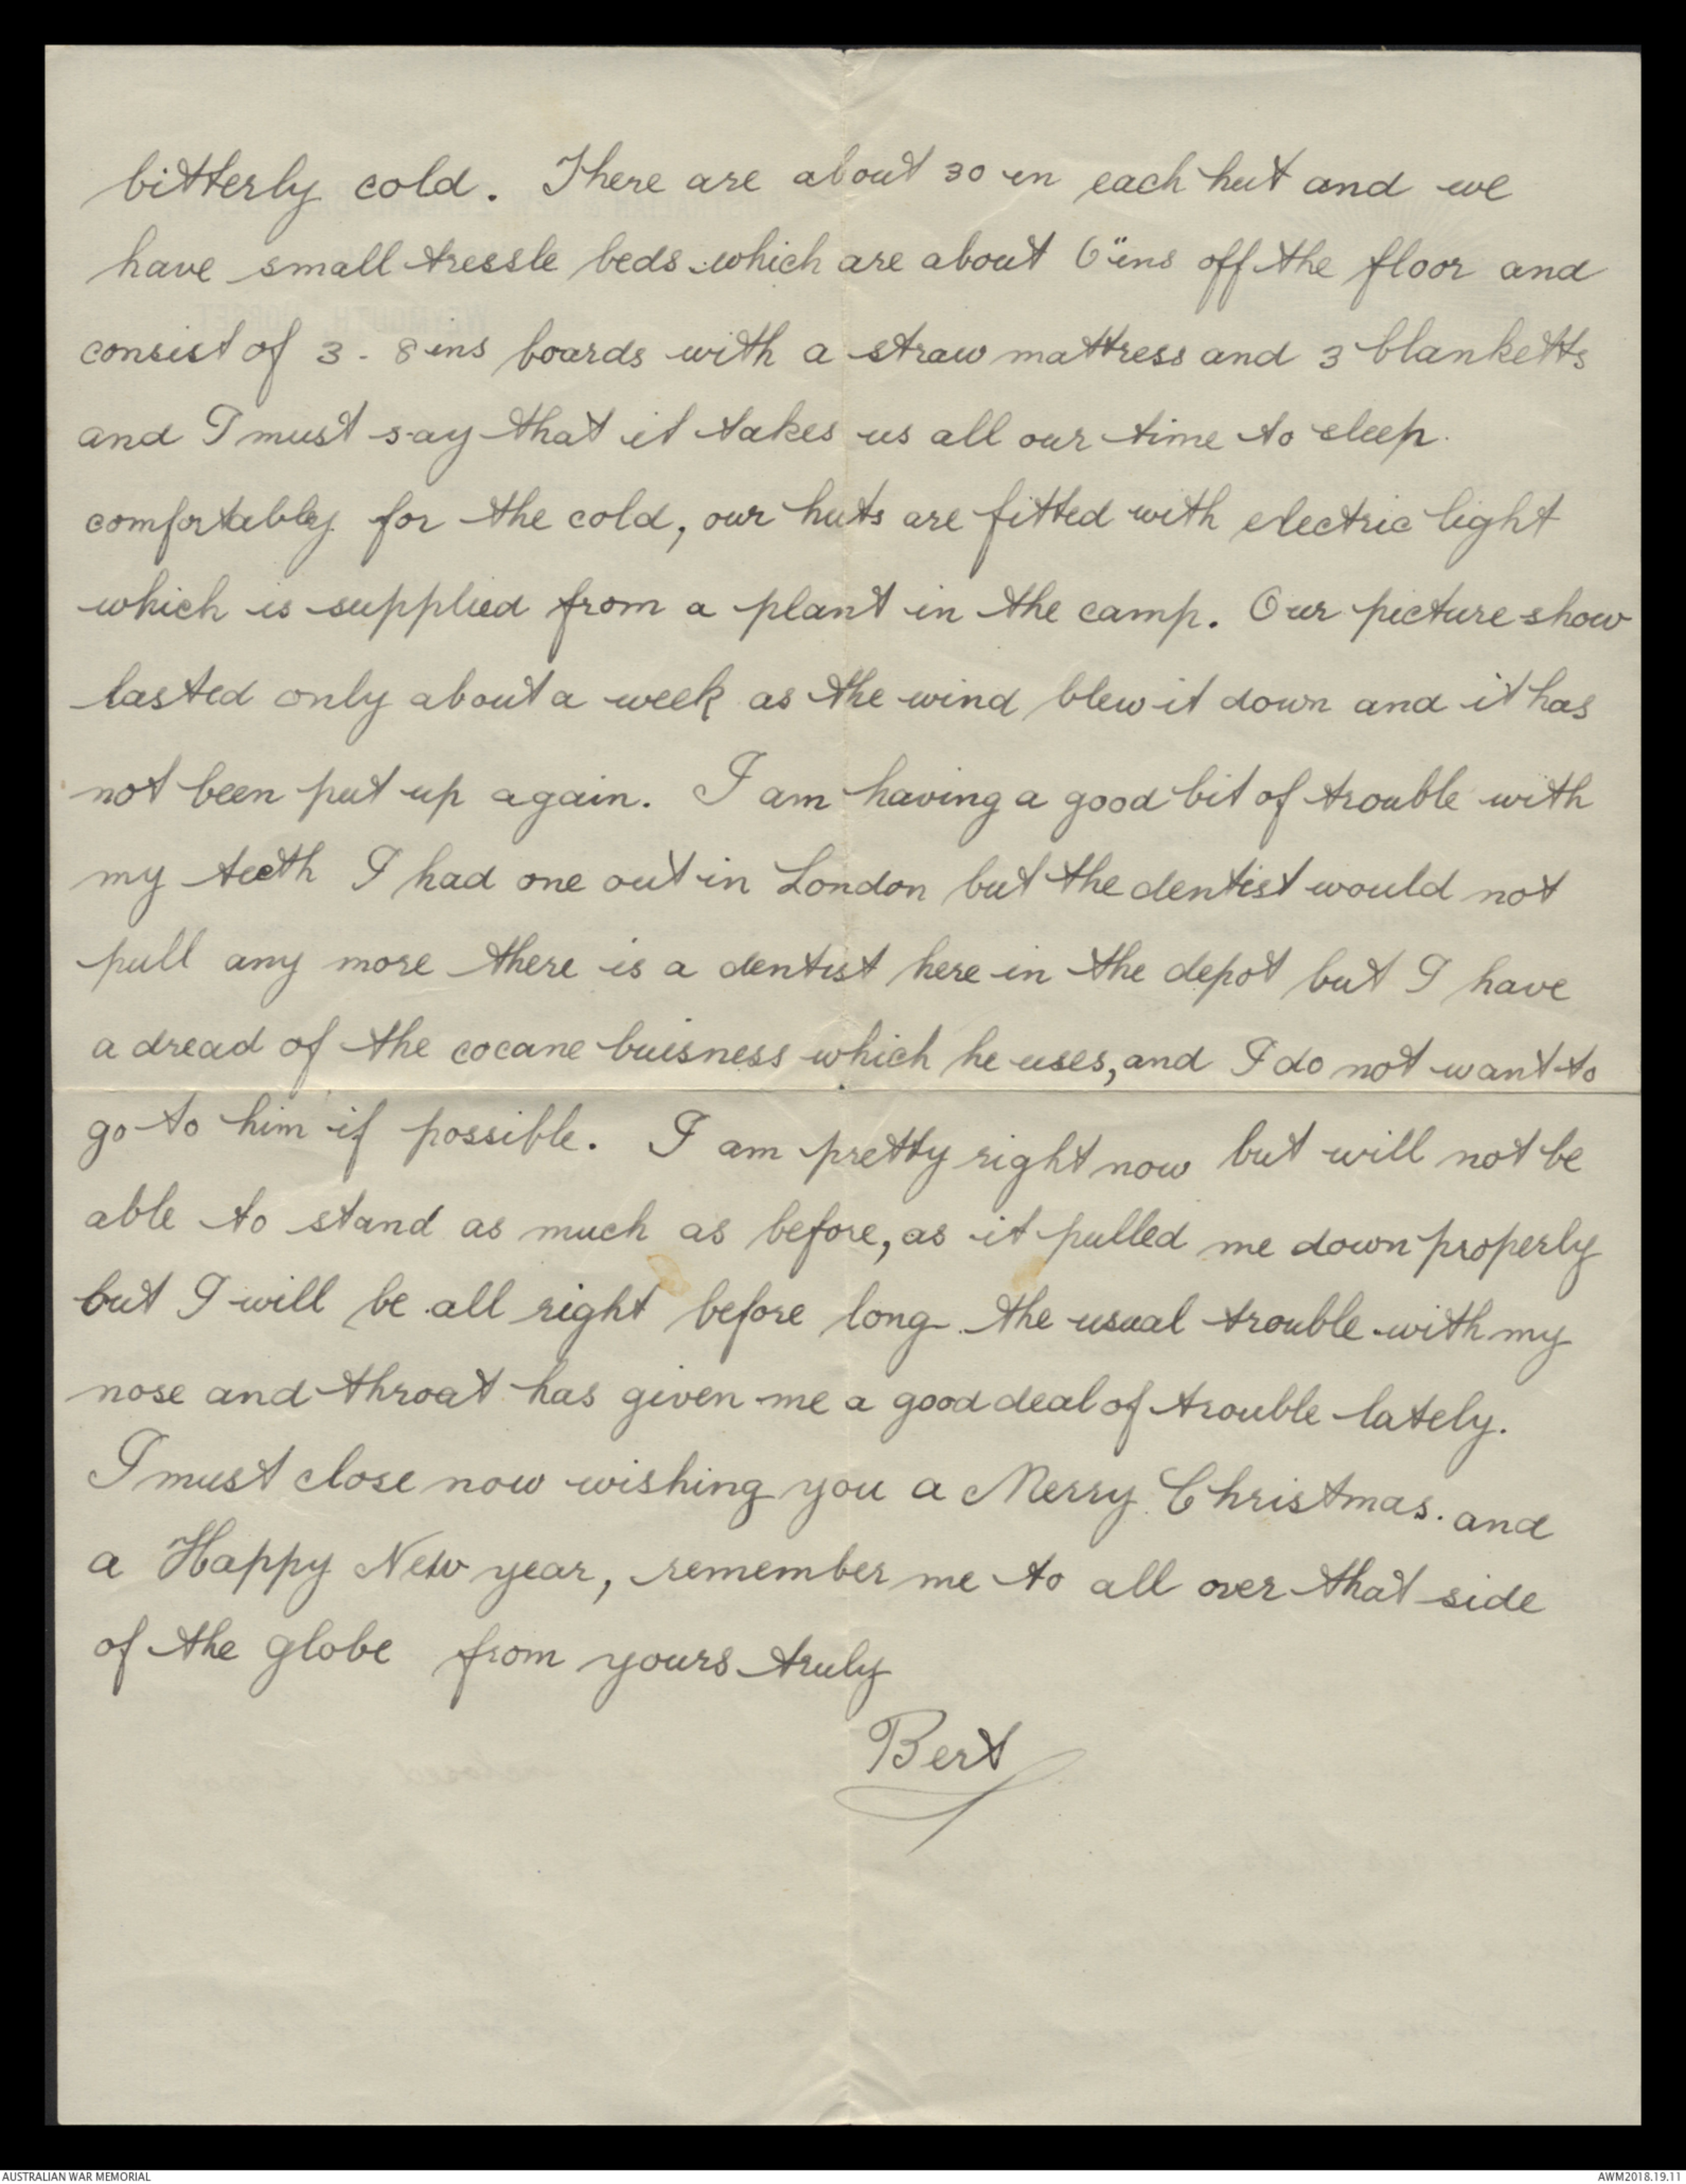 bitterly cold. There are about 30 in each hut and we
have small tressle beds which are about 6"ins off the floor and
consist of 3 - 8 ins boards with a straw mattress and 3 blanketts
and I must say that it takes us all our time to sleep.
comfortably for the cold, our huts are fitted with electric light
which is supplied from a plant in the camp. Our picture show
lasted only about a week as the wind blew it down and it has
not been put up again. I am having a good bit of trouble with
my teeth I had one out in London but the dentist would not
pull any more there is a dentist here in the depot but I have
a dread of the cocane buisness which he uses, and I do not want to
go to him if possible. I am pretty right now but will not be
able to stand as much as before, as it pulled me down properly
but I will be all right before long the usual trouble with my
nose and throat has given me a good deal of trouble lately.
I must close now wishing you a Merry Christmas. and
a Happy New year, remember me to all over that side
of the globe from yours truly
Bert
AUSTRALIAN WAR MEMORIAL
AWM2018.19.11